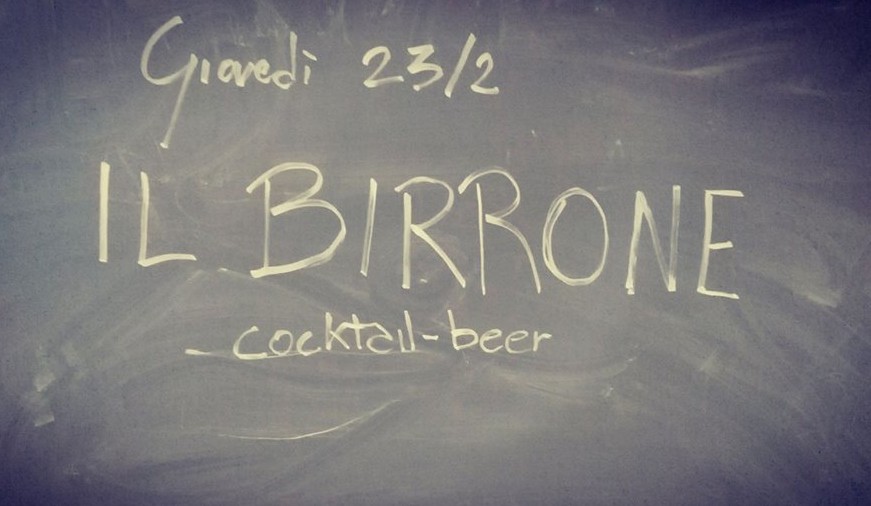 Giovedì 23/2
IL BIRRONE
- cocktail-beer